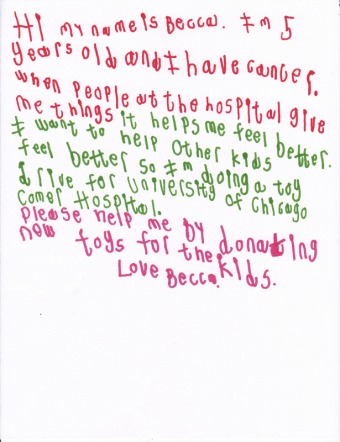 Hi my name is Becca. I'm 5
years old and I have cancer.
when people at the hospital give
me things it helps me feel better.
I want to help other kids
feel better so I'm doing a toy
drive for University of Chicago
Comer Hospital.
Please help me by donating
new toys for the kids.
Love Becca.